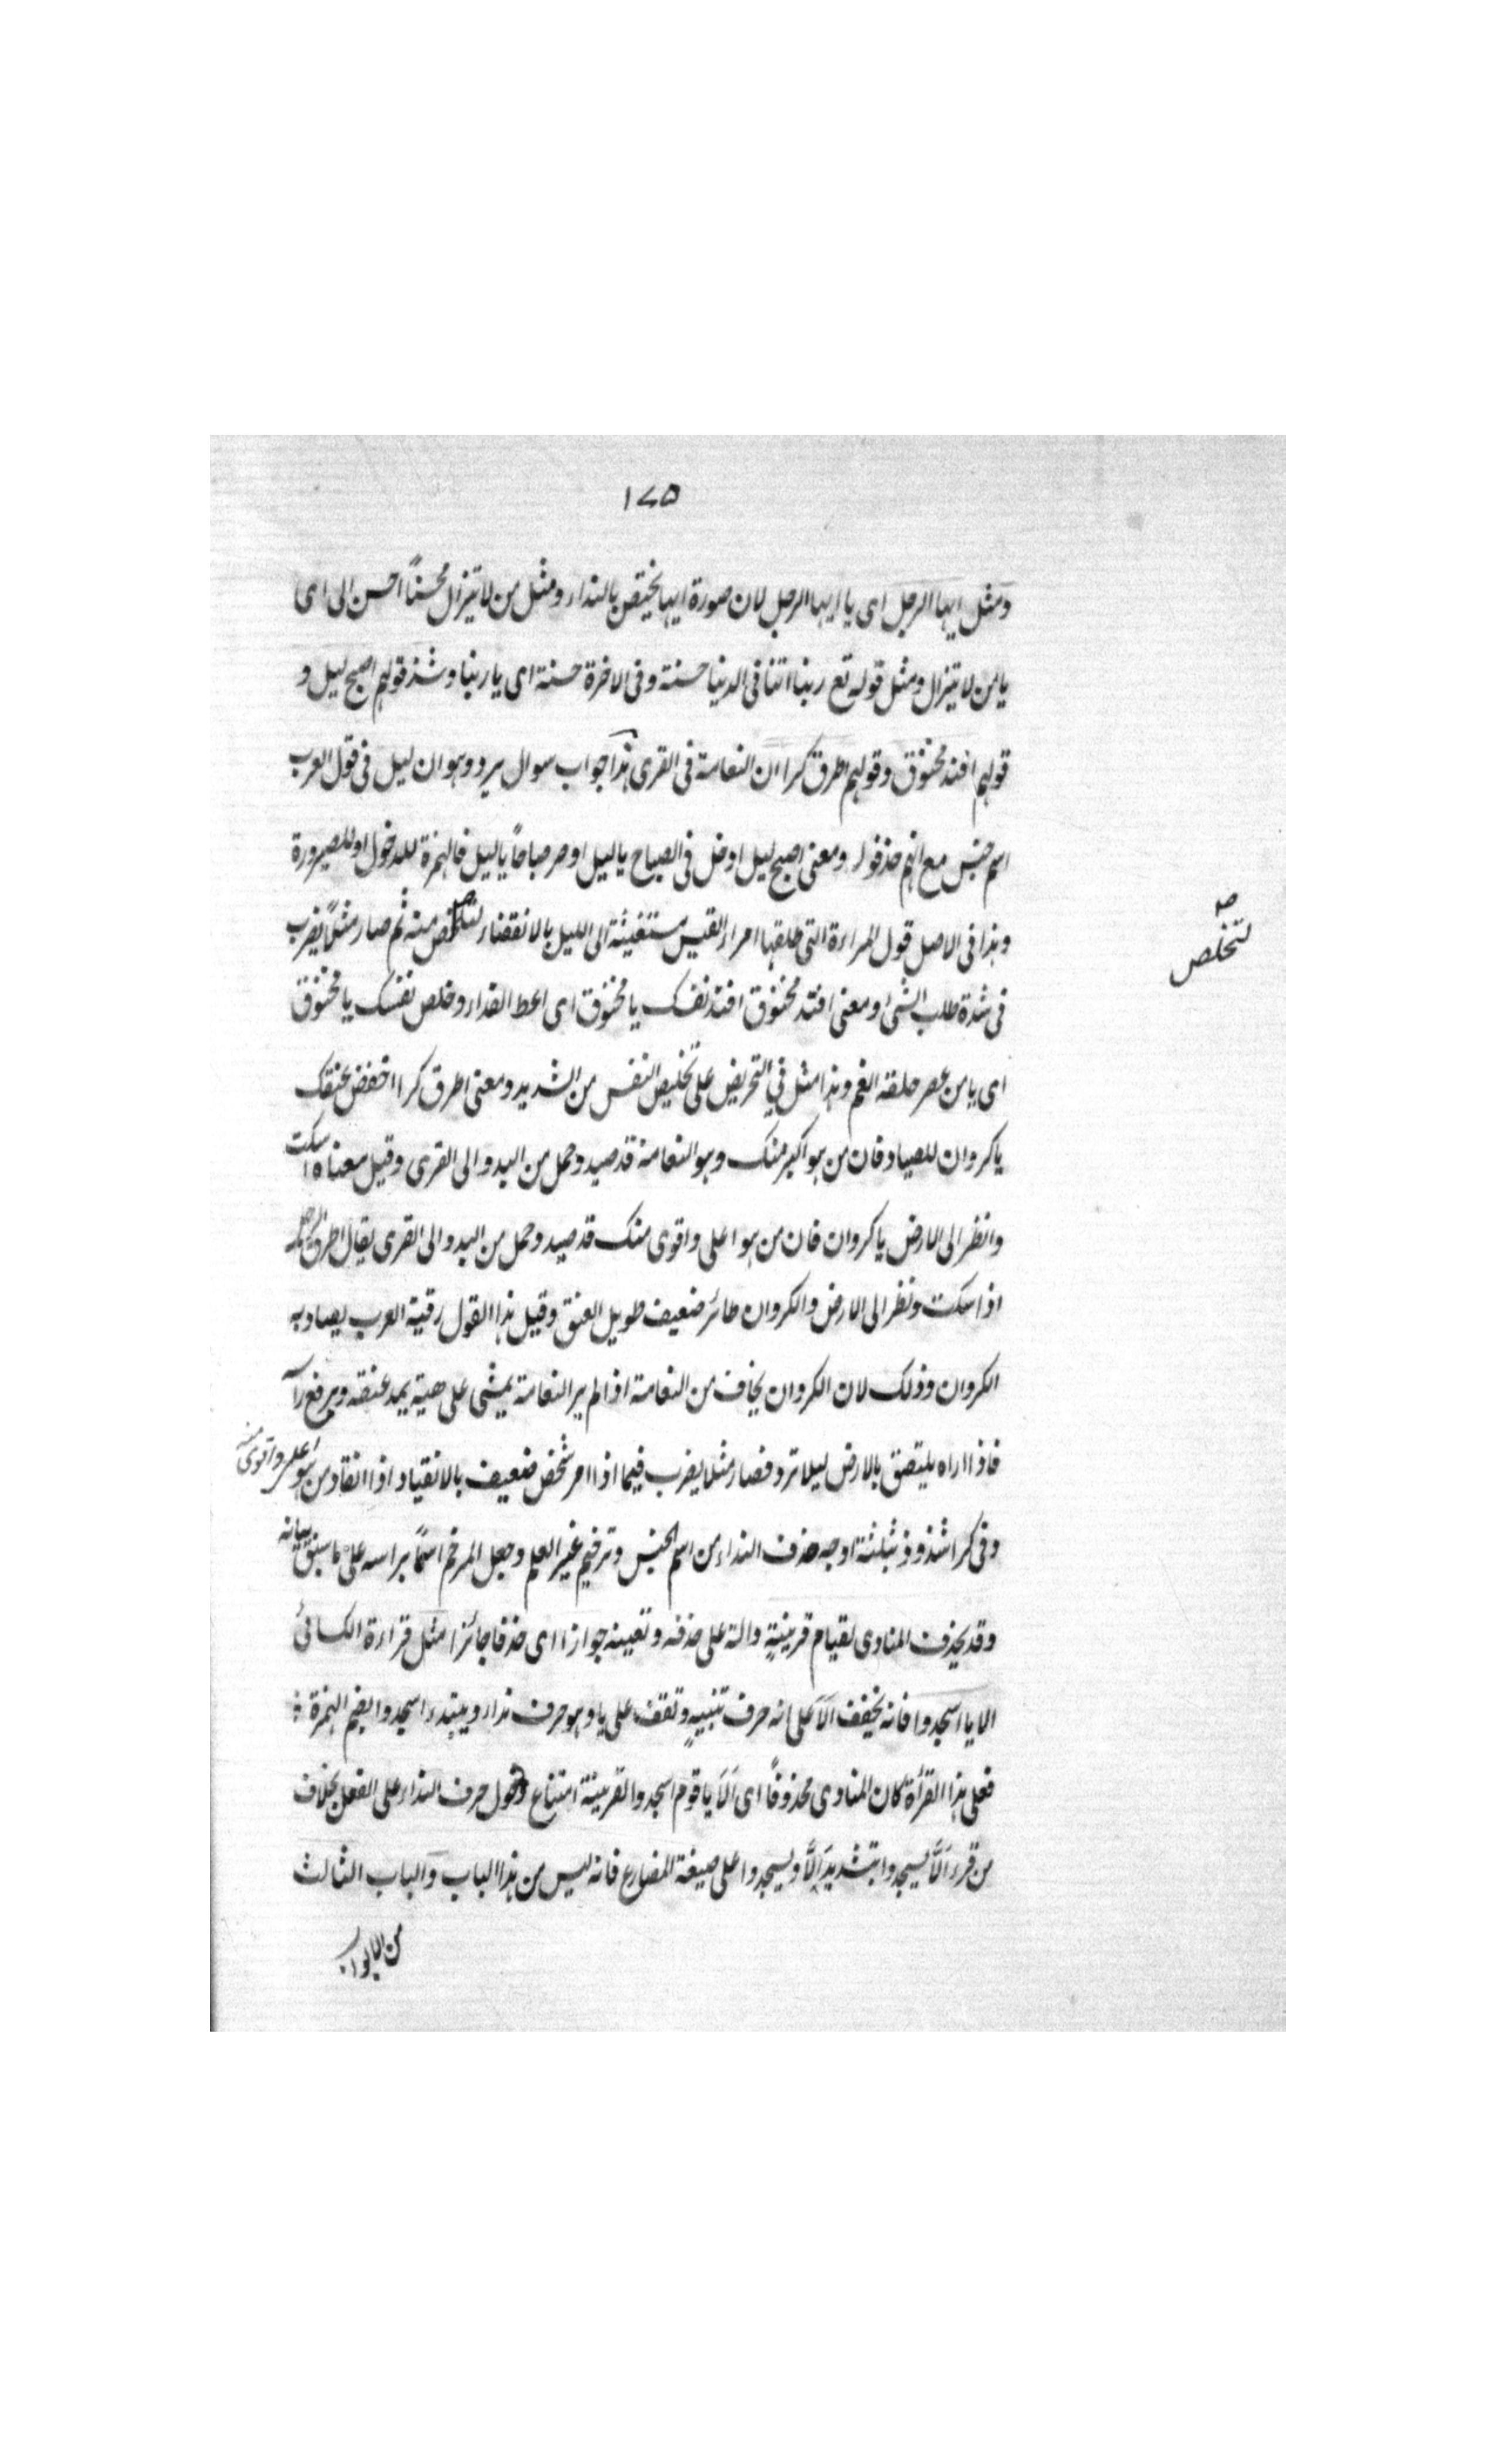 ١٧٥
ومثل ايها الرجل اى يا ايها الرجل لان صورة ايها يختص بالنداء ومثل من لا تيزال محسنًا احسن الى اى
يا من لا تيزال ومثل قوله تع ربنا اتنا فى الدنيا حسنة وفى الاخرة حسنة اى يا ربنا وشذ قولهم اصبح ليل و
قولهم افتد مخنوق وقولهم اطرق كرا ان النعامة فى القرى هذا جواب سوال يرد وهو ان ليل فى قول العرب
اسم جنس مع انهم حذفوا ومعنى اصبح ليل ادخل فى الصباح يا ليل او صر صباحًا يا ليل فالهمزة للدخول او للصيرورة
وهذا فى الاصل قول المراءة التى طلقها امراء القيس مستغيثة الى الليل بالانقضاء لتخلص منه ثم صار مثلًا يضرب
لتخلص
فى شدة طلب الشئ ومعنى افتد مخنوق افتد نفسك يا مخنوق اى اعط الفداء وخلص نفسك يا مخنوق
اى يا من عصر حلقه الغم وهذا مثل فى التحريض على تخليص النفس من الشديد ومعنى اطرق كرا اخفض عنقك
يا كروان للصياد فان من هو اكبر منك وهو النعامة قد صيد وحمل من البدو الى القرى وقيل معناه اسكت
وانظر الى الارض يا كروان فان من هو اعلى واقوى منك قد صيد وحمل من البدو الى القرى يقال اطرق الرجل
اذا سكت ونظر الى الارض والكروان طائر ضعيف طويل العنق وقيل هذا القول رقية العرب يصاد به
الكروان وذلك لان الكروان يخاف من النعامة اذا لم ير النعامة يمشى على هية يمد عنقه ويرفع راسه
فاذا اراه يلتصق بالارض ليلا ترو فصار مثلا يضرب فيما اذا امر شخص ضعيف بالانقياد اذا انقاد من هو اعلى واقوى منه
وفى كرا شذوذ بثلثة اوجه حذف النداء من اسم الجنس وترخيم غير العلم وجعل المرخم اسمًا براسه على ما سبق بيانه
وقد يحذف المنادى لقيام قرينةٍ دالة على حذفه وتعيينه جوازا اى حذفا جائزا مثل قراءة الكسائىّ
الا يا اسجدوا فانه يخفف اَلَا على انه حرف تنبيهٍ وتقف على يا وهو حرف نداء ويبتدء اسجدوا بضم الهمزة
فعلى هذا القرأة كان المنادى محذوفًا اى اَلَا يا قوم اسجدوا القرينة امتناع دخول حرف النداء على الفعل بخلاف
من قرء اَلَّا يسجدوا بتشديد اَلَّا ويسجدوا على صيغة المضارع فانه ليس من هذا الباب والباب الثالث
من الابواب